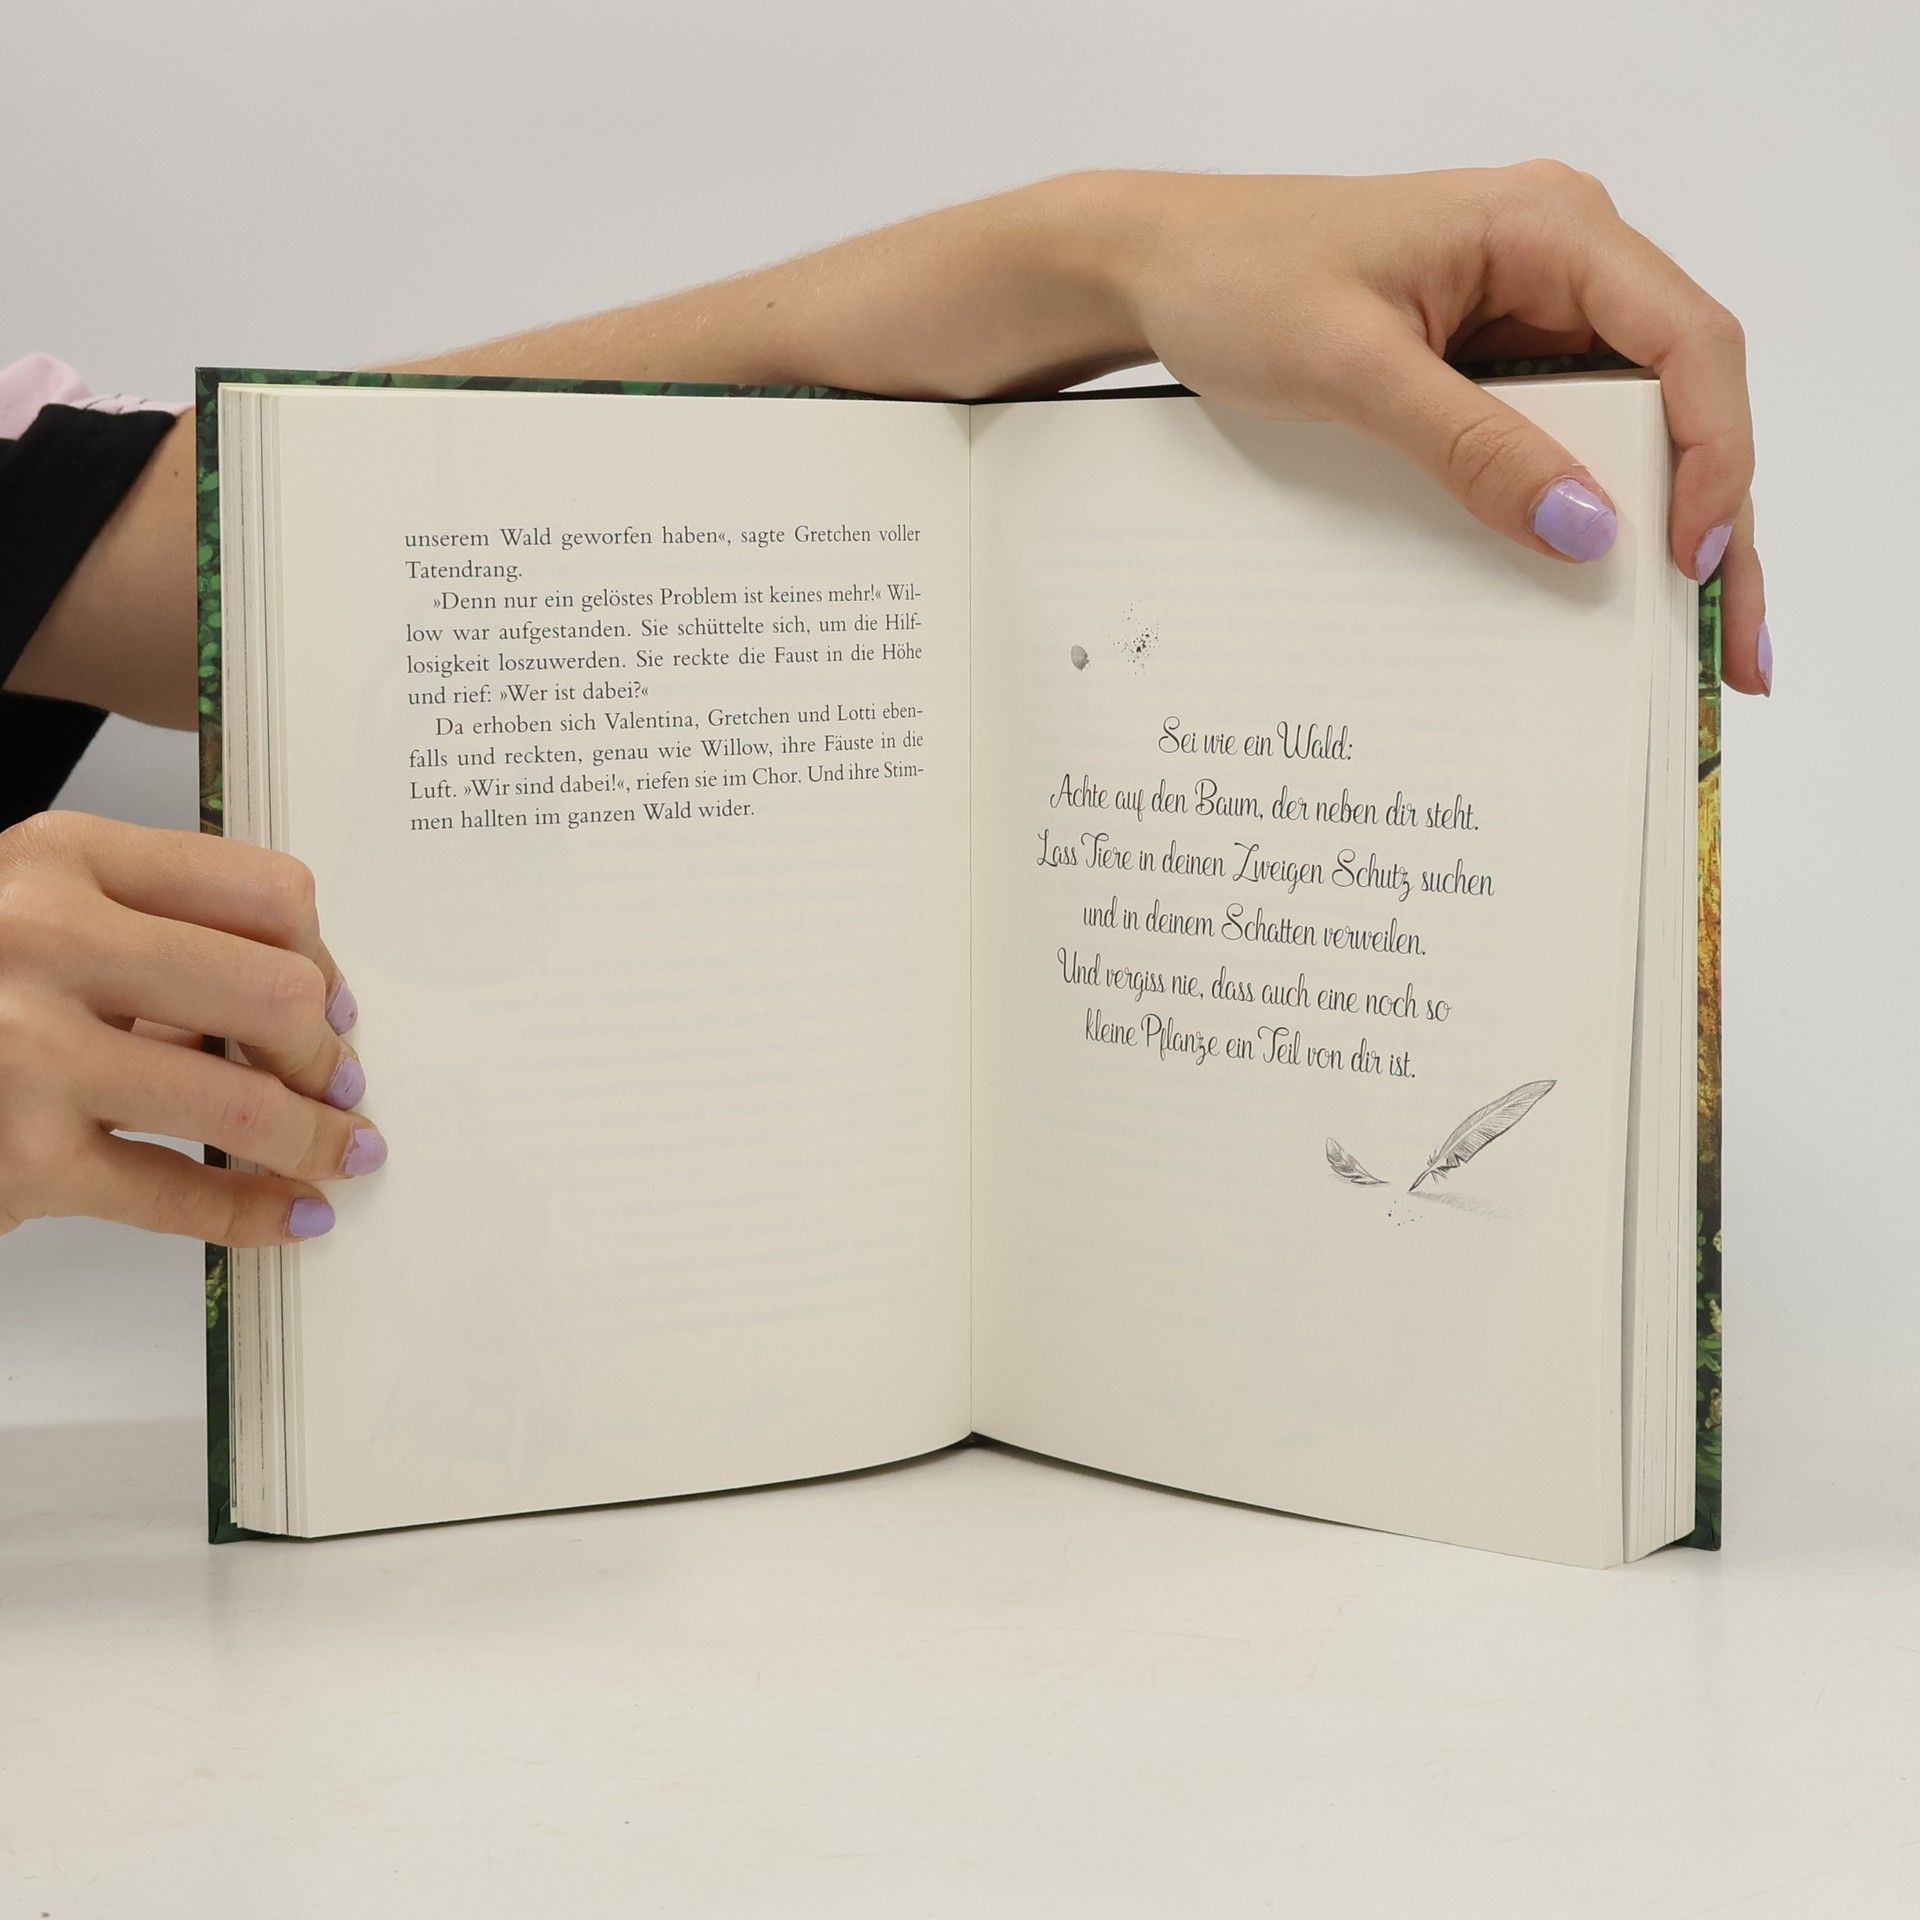 unserem Wald geworfen haben«, sagte Gretchen voller
Tatendrang.
»Denn nur ein gelöstes Problem ist keines mehr!« Wil-
low war aufgestanden. Sie schüttelte sich, um die Hilf-
losigkeit loszuwerden. Sie reckte die Faust in die Höhe
und rief: »Wer ist dabei?«
Da erhoben sich Valentina, Gretchen und Lotti eben-
falls und reckten, genau wie Willow, ihre Fäuste in die
Luft. »Wir sind dabei!«, riefen sie im Chor. Und ihre Stim-
men hallten im ganzen Wald wider.
Sei wie ein Wald:
Achte auf den Baum, der neben dir steht.
Lass Tiere in deinen Zweigen Schutz suchen
und in deinem Schatten verweilen.
Und vergiss nie, dass auch eine noch so
kleine Pflanze ein Teil von dir ist.